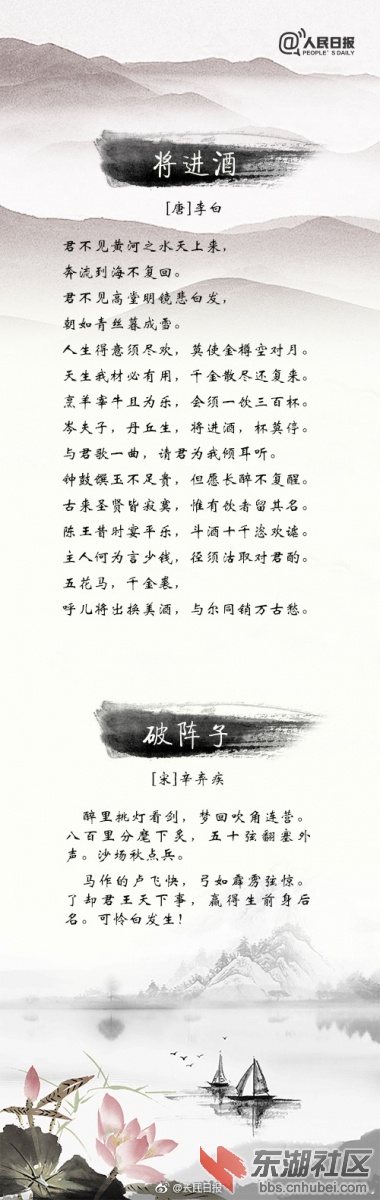 @人民日报
PEOPLE'S DAILY
将进酒
[唐]李白
君不见黄河之水天上来，
奔流到海不复回。
君不见高堂明镜悲白发，
朝如青丝暮成雪。
人生得意须尽欢，莫使金樽空对月。
天生我材必有用，千金散尽还复来。
烹羊宰牛且为乐，会须一饮三百杯。
岑夫子，丹丘生，将进酒，杯莫停。
与君歌一曲，请君为我倾耳听。
钟鼓馔玉不足贵，但愿长醉不复醒。
古来圣贤皆寂寞，惟有饮者留其名。
陈王昔时宴平乐，斗酒十千恣欢谑。
主人何为言少钱，径须沽取对君酌。
五花马，千金裘，
呼儿将出换美酒，与尔同销万古愁。
破阵子
[宋]辛弃疾
醉里挑灯看剑，梦回吹角连营。
八百里分麾下炙，五十弦翻塞外
声。沙场秋点兵。
马作的卢飞快，弓如霹雳弦惊。
了却君王天下事，赢得生前身后
名。可怜白发生！
@人民日报
东湖社区
bbs.cnhubei.com